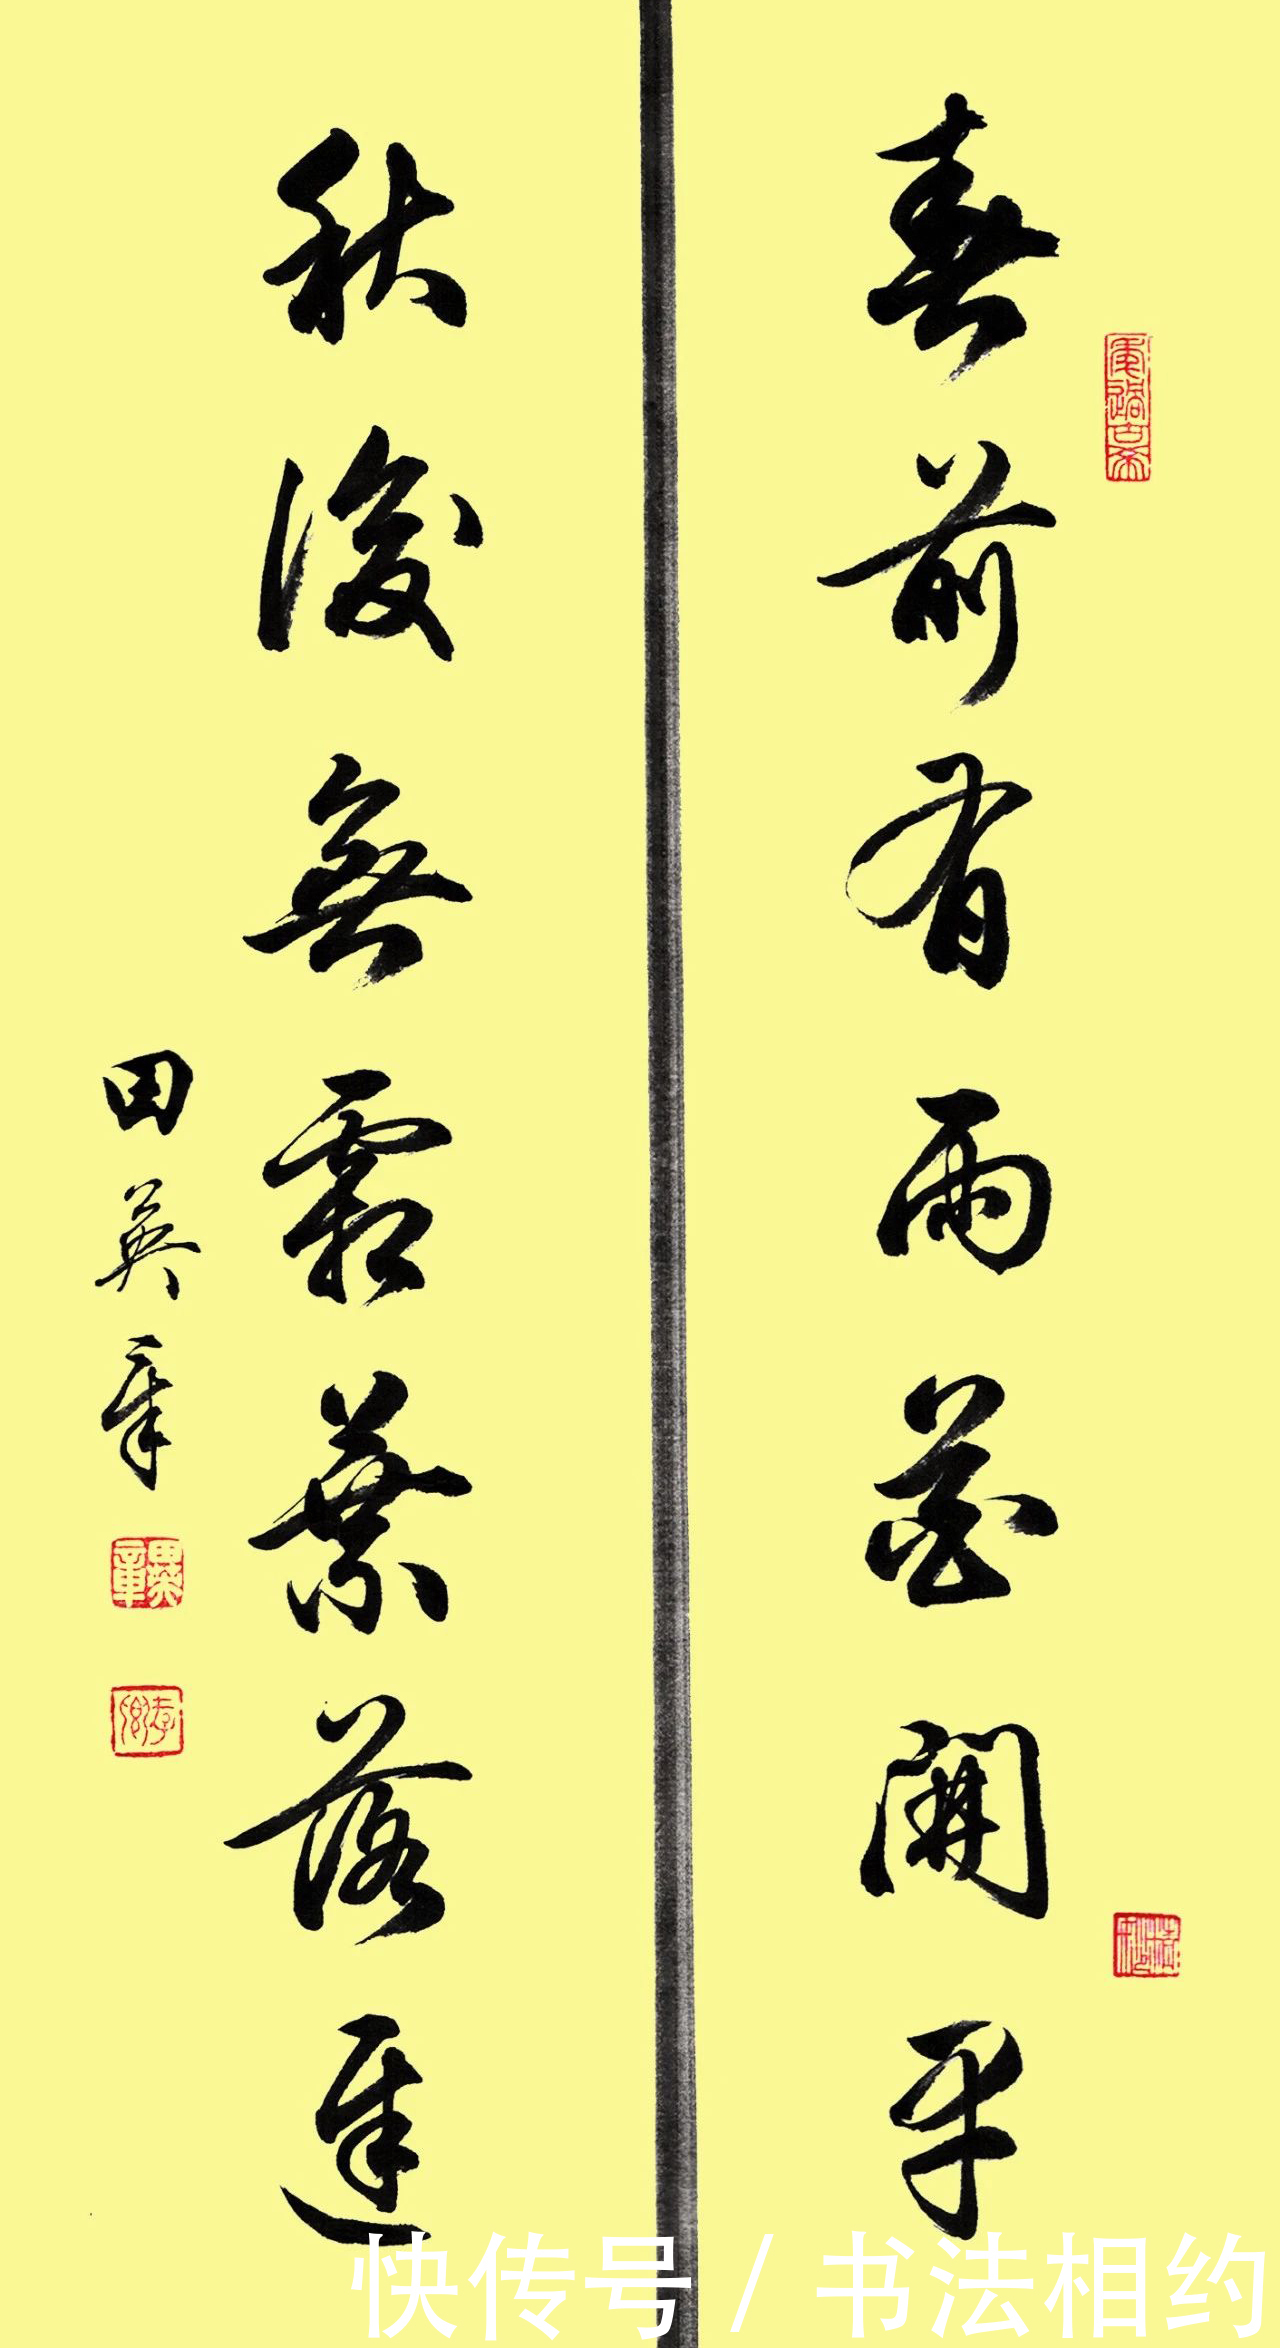 春前有雨花開早
秋後無霜葉落遲
田英章
田英章
快传号 / 书法相约